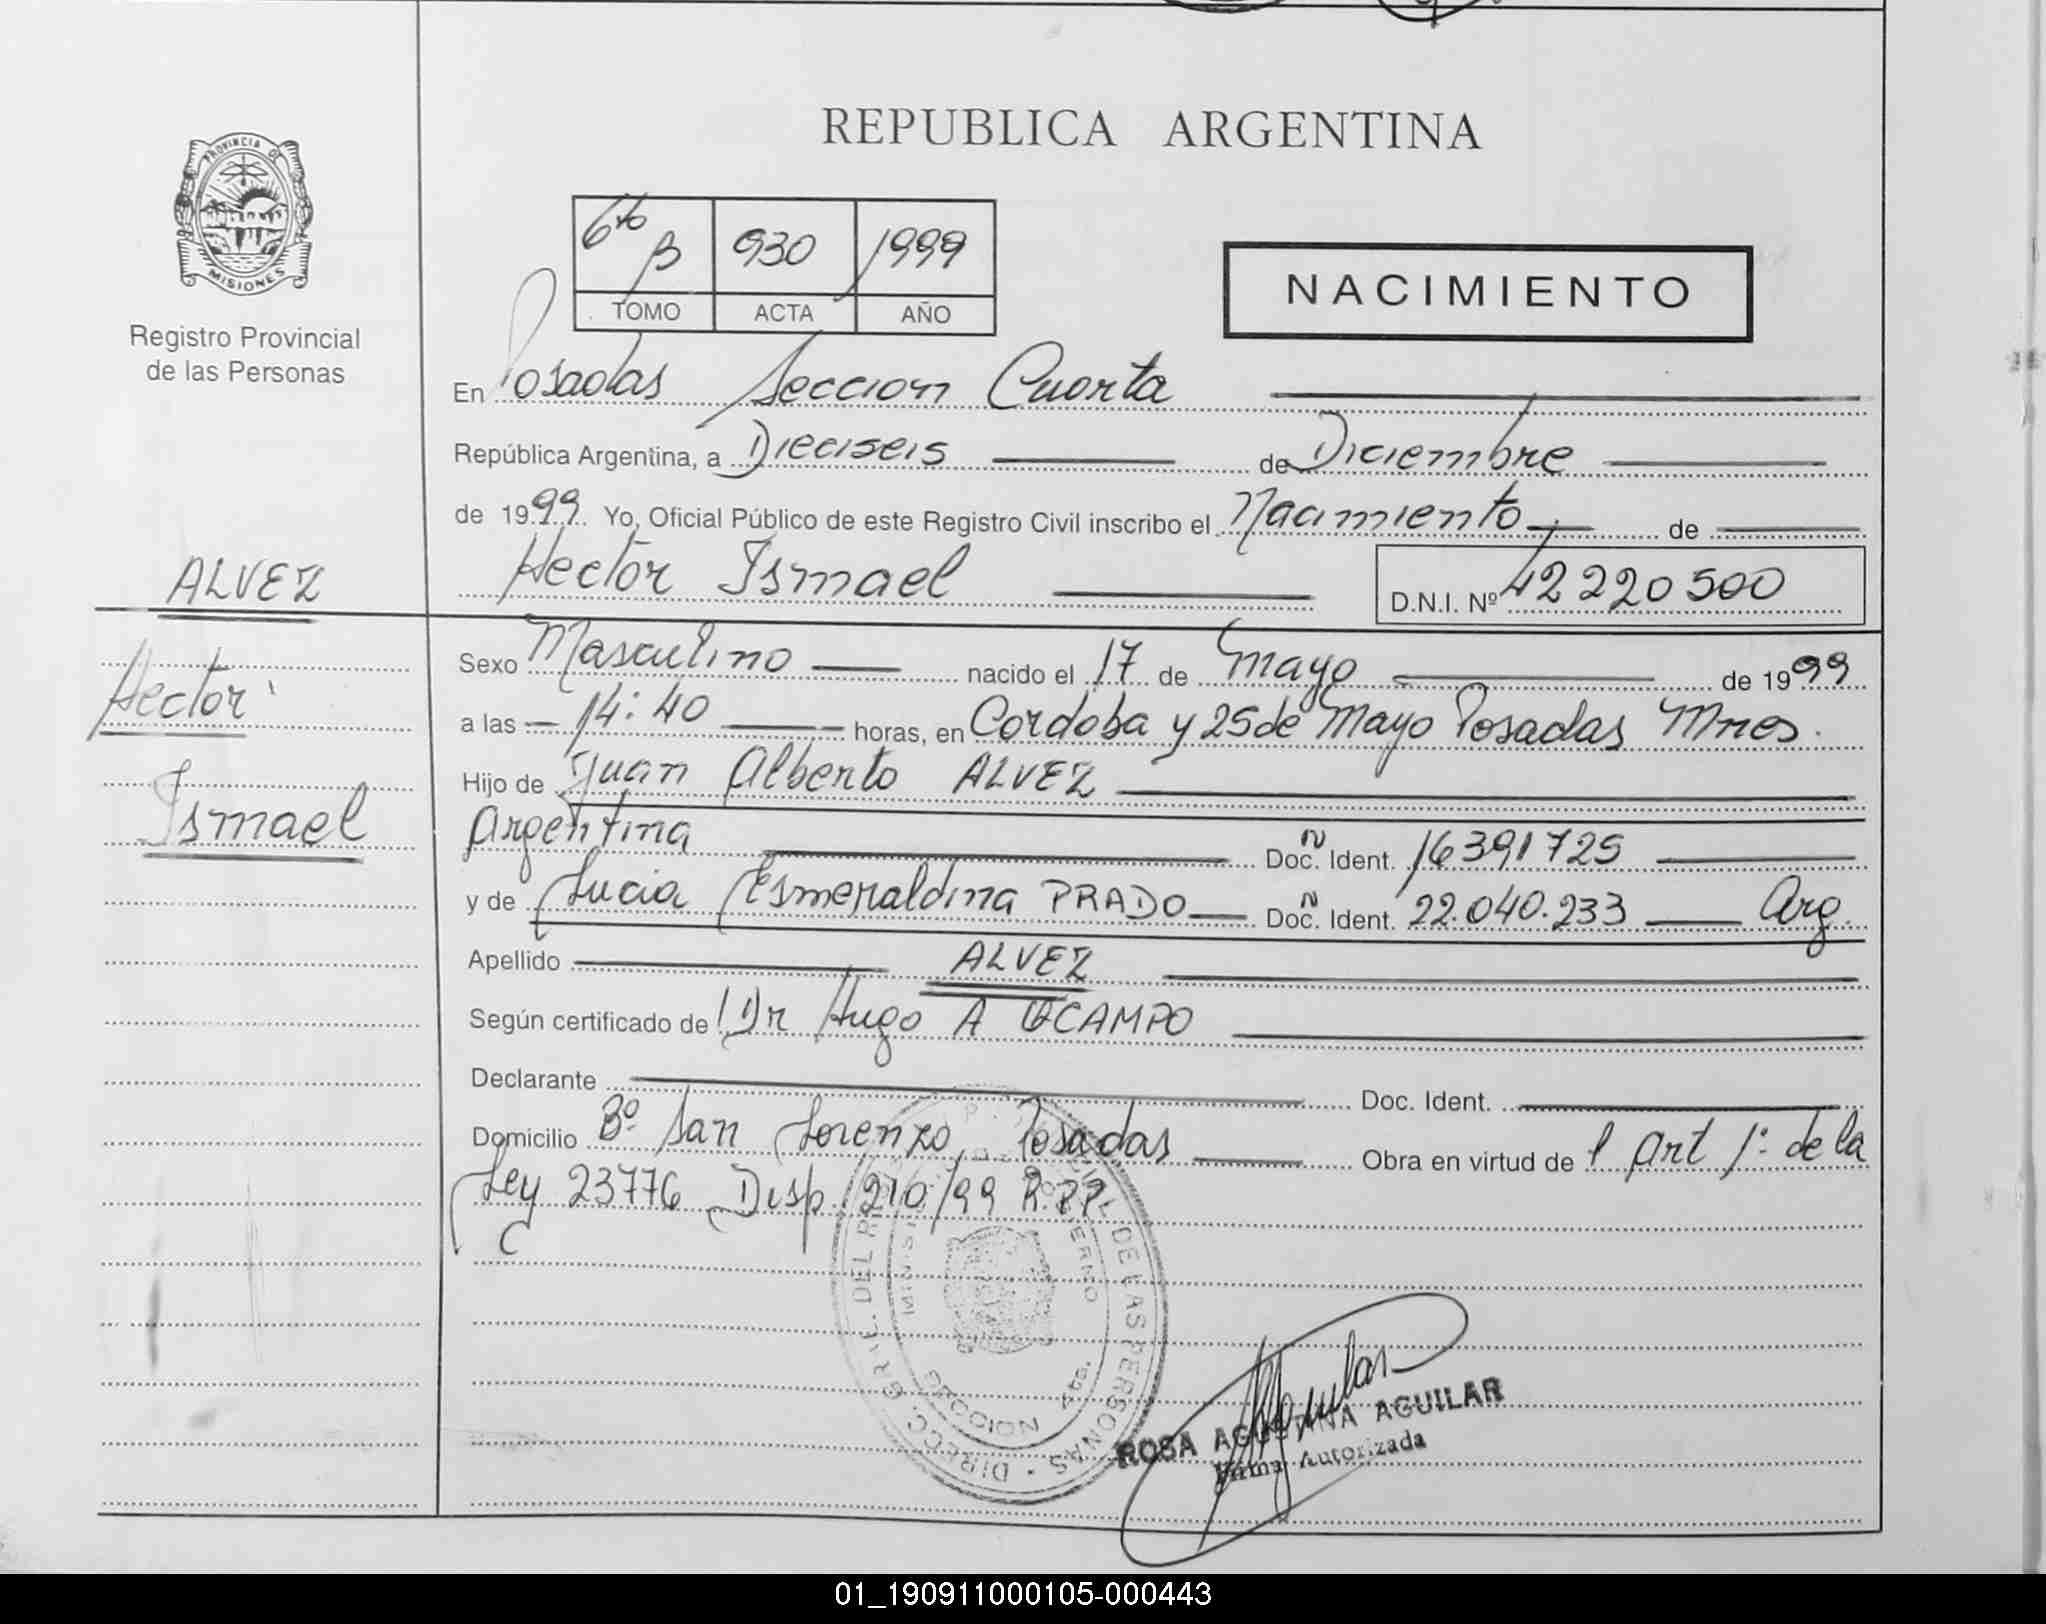 REPUBLICA ARGENTINA
PROVINCIA DE
MISIONES
Registro Provincial
de las Personas
6to B 930 1999
TOMO ACTA AÑO
NACIMIENTO
En Posadas Seccion Cuarta
República Argentina, a Dieciseis de Diciembre
de 1999 Yo, Oficial Público de este Registro Civil inscribo el Nacimiento de
Hector Ismael D.N.I. Nº 42220500
ALVEZ
Hector
Ismael
Sexo Masculino nacido el 17 de Mayo de 1999
a las 14:40 horas, en Cordoba y 25 de Mayo Posadas Mnes.
Hijo de Juan Alberto ALVEZ
Argentina Doc. Ident. 16391725
y de Lucia Esmeraldina PRADO Doc. Ident. 22.040.233 Arg.
Apellido ALVEZ
Según certificado de Dr Hugo A OCAMPO
Declarante Doc. Ident.
Domicilio Bº San Lorenzo Posadas Obra en virtud de l Art 1º de la
Ley 23776 Disp. 210/99 R.P.P.
DE LAS PERSONAS · DIRECC. GRAL. DEL
Aguilar
ROSA AGUSTINA AGUILAR
Firma Autorizada
01_190911000105-000443